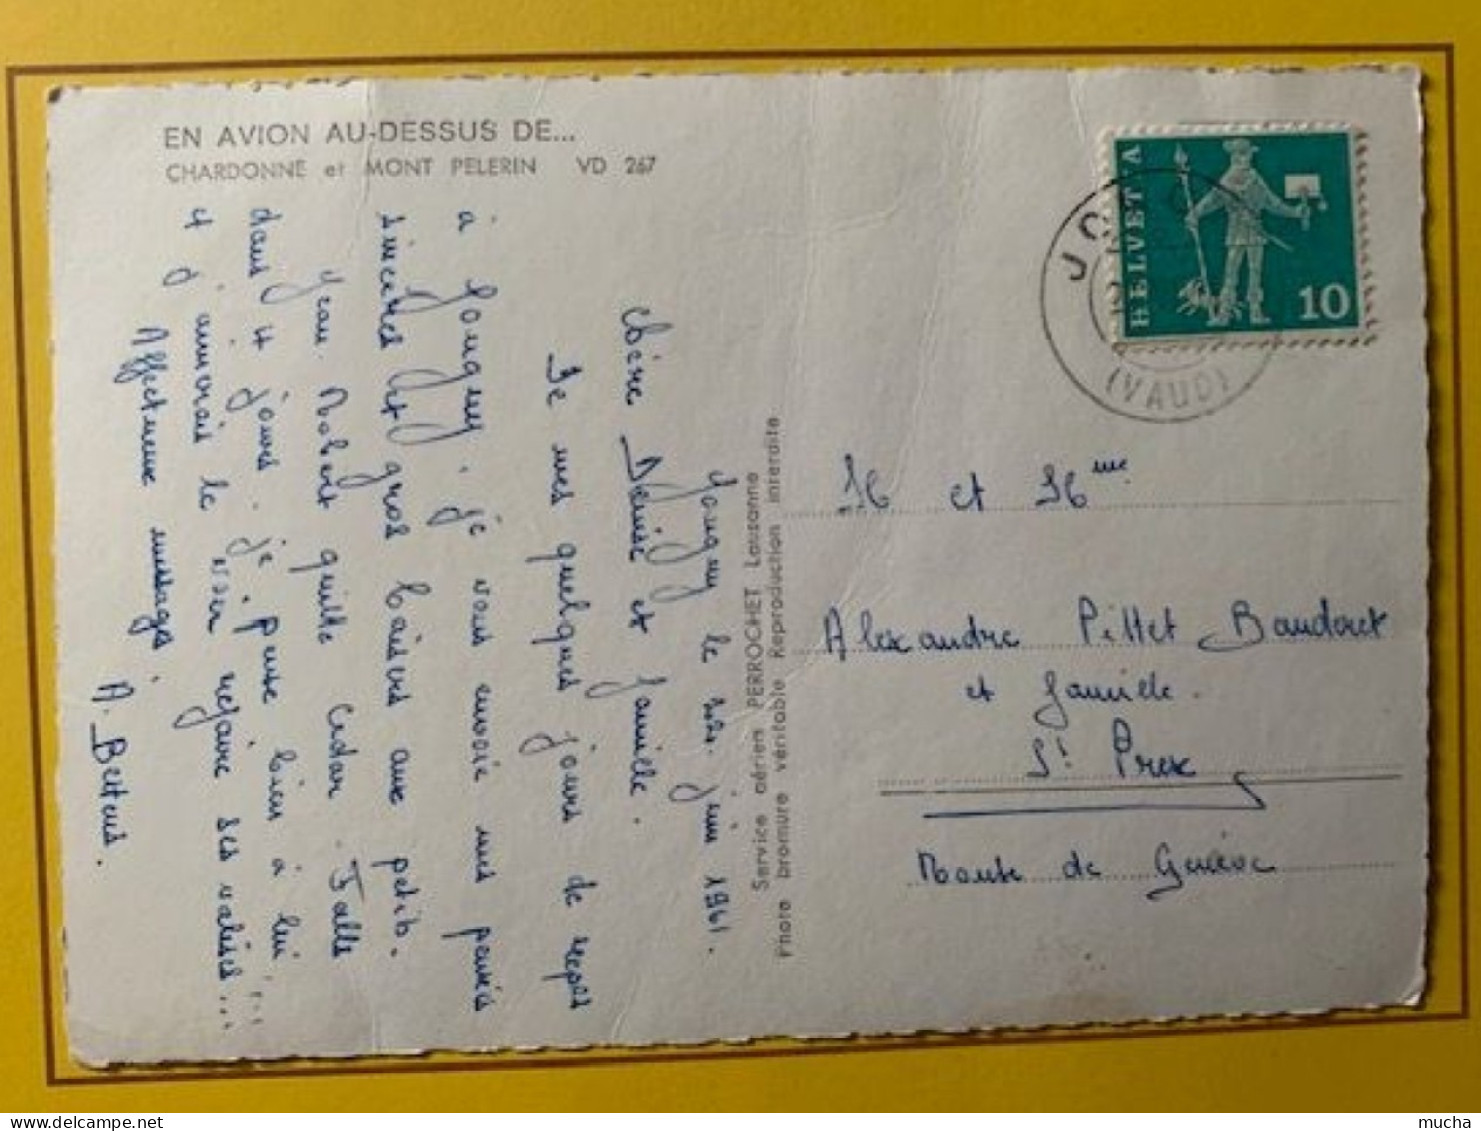 EN AVION AU-DESSUS DE...
CHARDONNE et MONT PELERIN VD 267
HELVETIA
10
(VAUD)
Jongny le juin 1961.
Chère Denise et famille.
De mes quelques jours de repos
à Jongny, je vous envoie mes pensées
sincères et gros baisers aux petits.
Jean Robert quitte Cedar
dans 4 jours. je pense bien à lui ...
et j'aimerais le voir refaire ses valises ...
Affectueux messages.
A.
Service aérien PERROCHET Lausanne
Photo bromure véritable Reproduction interdite
M et Mme
Alexandre Pittet Baudoret
et famille.
St Prex
Route de Genève
mucha